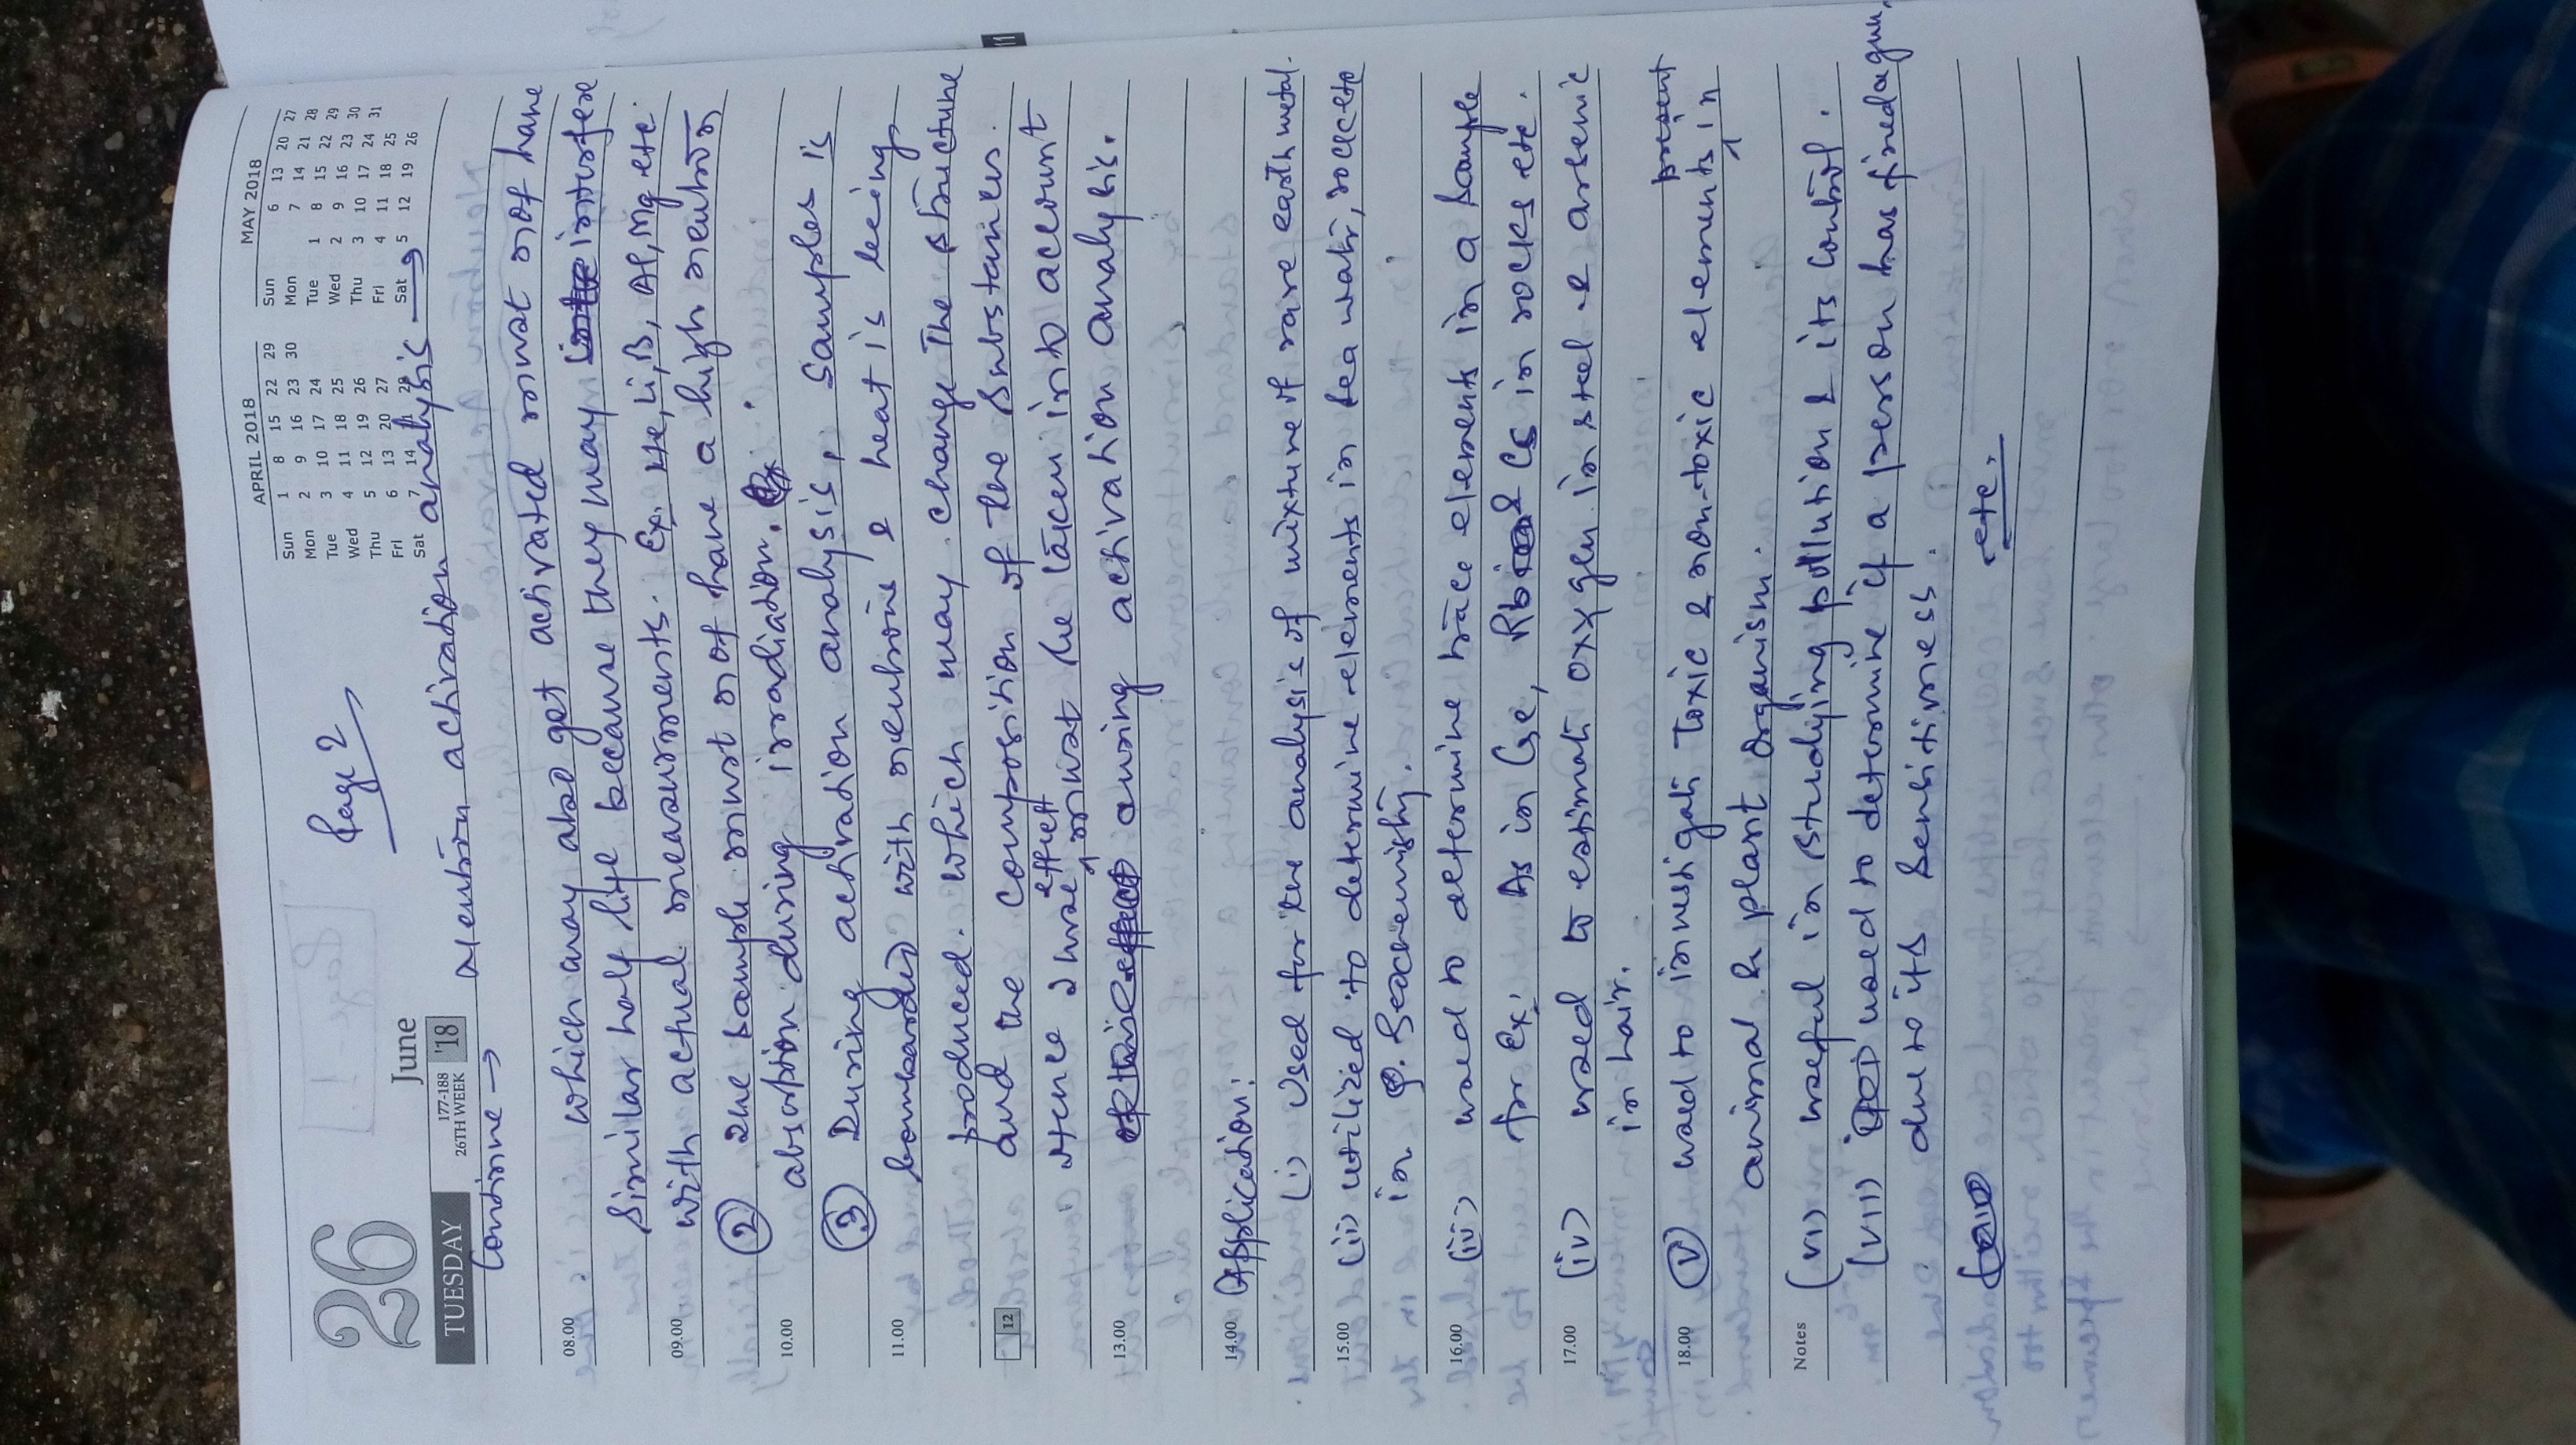 Page 2
26
June
TUESDAY
177-188
26TH WEEK '18
APRIL 2018
Sun 1 8 15 22 29
Mon 2 9 16 23 30
Tue 3 10 17 24
Wed 4 11 18 25
Thu 5 12 19 26
Fri 6 13 20 27
Sat 7 14 21 28
MAY 2018
Sun 6 13 20 27
Mon 7 14 21 28
Tue 1 8 15 22 29
Wed 2 9 16 23 30
Thu 3 10 17 24 31
Fri 4 11 18 25
Sat 5 12 19 26
Continue → Neutron activation analysis →
08.00 which may also get activated must not have
similar half life because they may interfere
09.00 with actual measurements. Ex. He, Li, B, Al, Mg etc.
② The sample must not have a high neutron
10.00 absorption during irradiation.
③ During activation analysis, samples is
11.00 bombarded with neutrons & heat is being
produced. which may change The structure
12 and the composition of the substances.
Hence these effect must be taken into account
13.00 during activation analysis.
14.00 Application:
(i) Used for the analysis of mixture of rare earth metal.
15.00 (ii) utilized to determine elements in sea water, rocks
in Geochemistry.
16.00 (iii) used to determine trace elements in a sample
for Ex: As in Ge, Rb & Cs in rocks etc.
17.00 (iv) used to estimate oxygen in steel & arsenic
in hair.
18.00 (v) used to investigate Toxic & non-toxic elements present in
animal & plant organism.
Notes (vi) useful in studying pollution & its control.
(vii) used to determine if a person has fired a gun,
due to its sensitiveness.
etc.
11